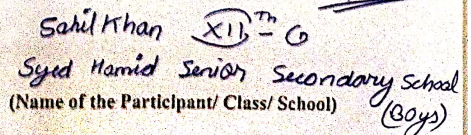 Sahil Khan XIIth - G
Syed Hamid Senior Secondary School
(Name of the Participant/ Class/ School) (Boys)